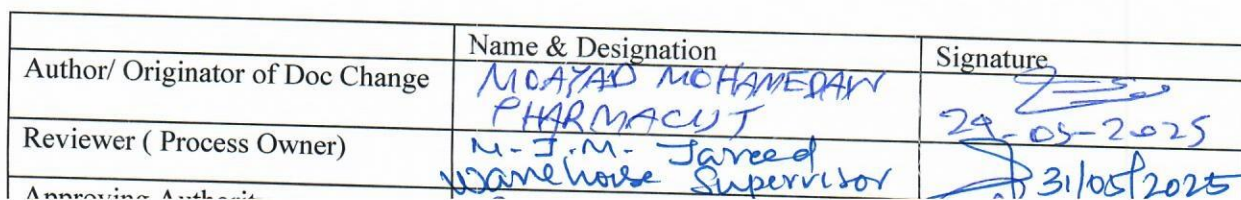 Name & Designation Signature
Author/ Originator of Doc Change MOAYAD MOHAMEDAW
PHARMACUT 29-05-2025
Reviewer ( Process Owner) M.J.M. Jareed
Warehouse Supervisor 31/05/2025
Approving